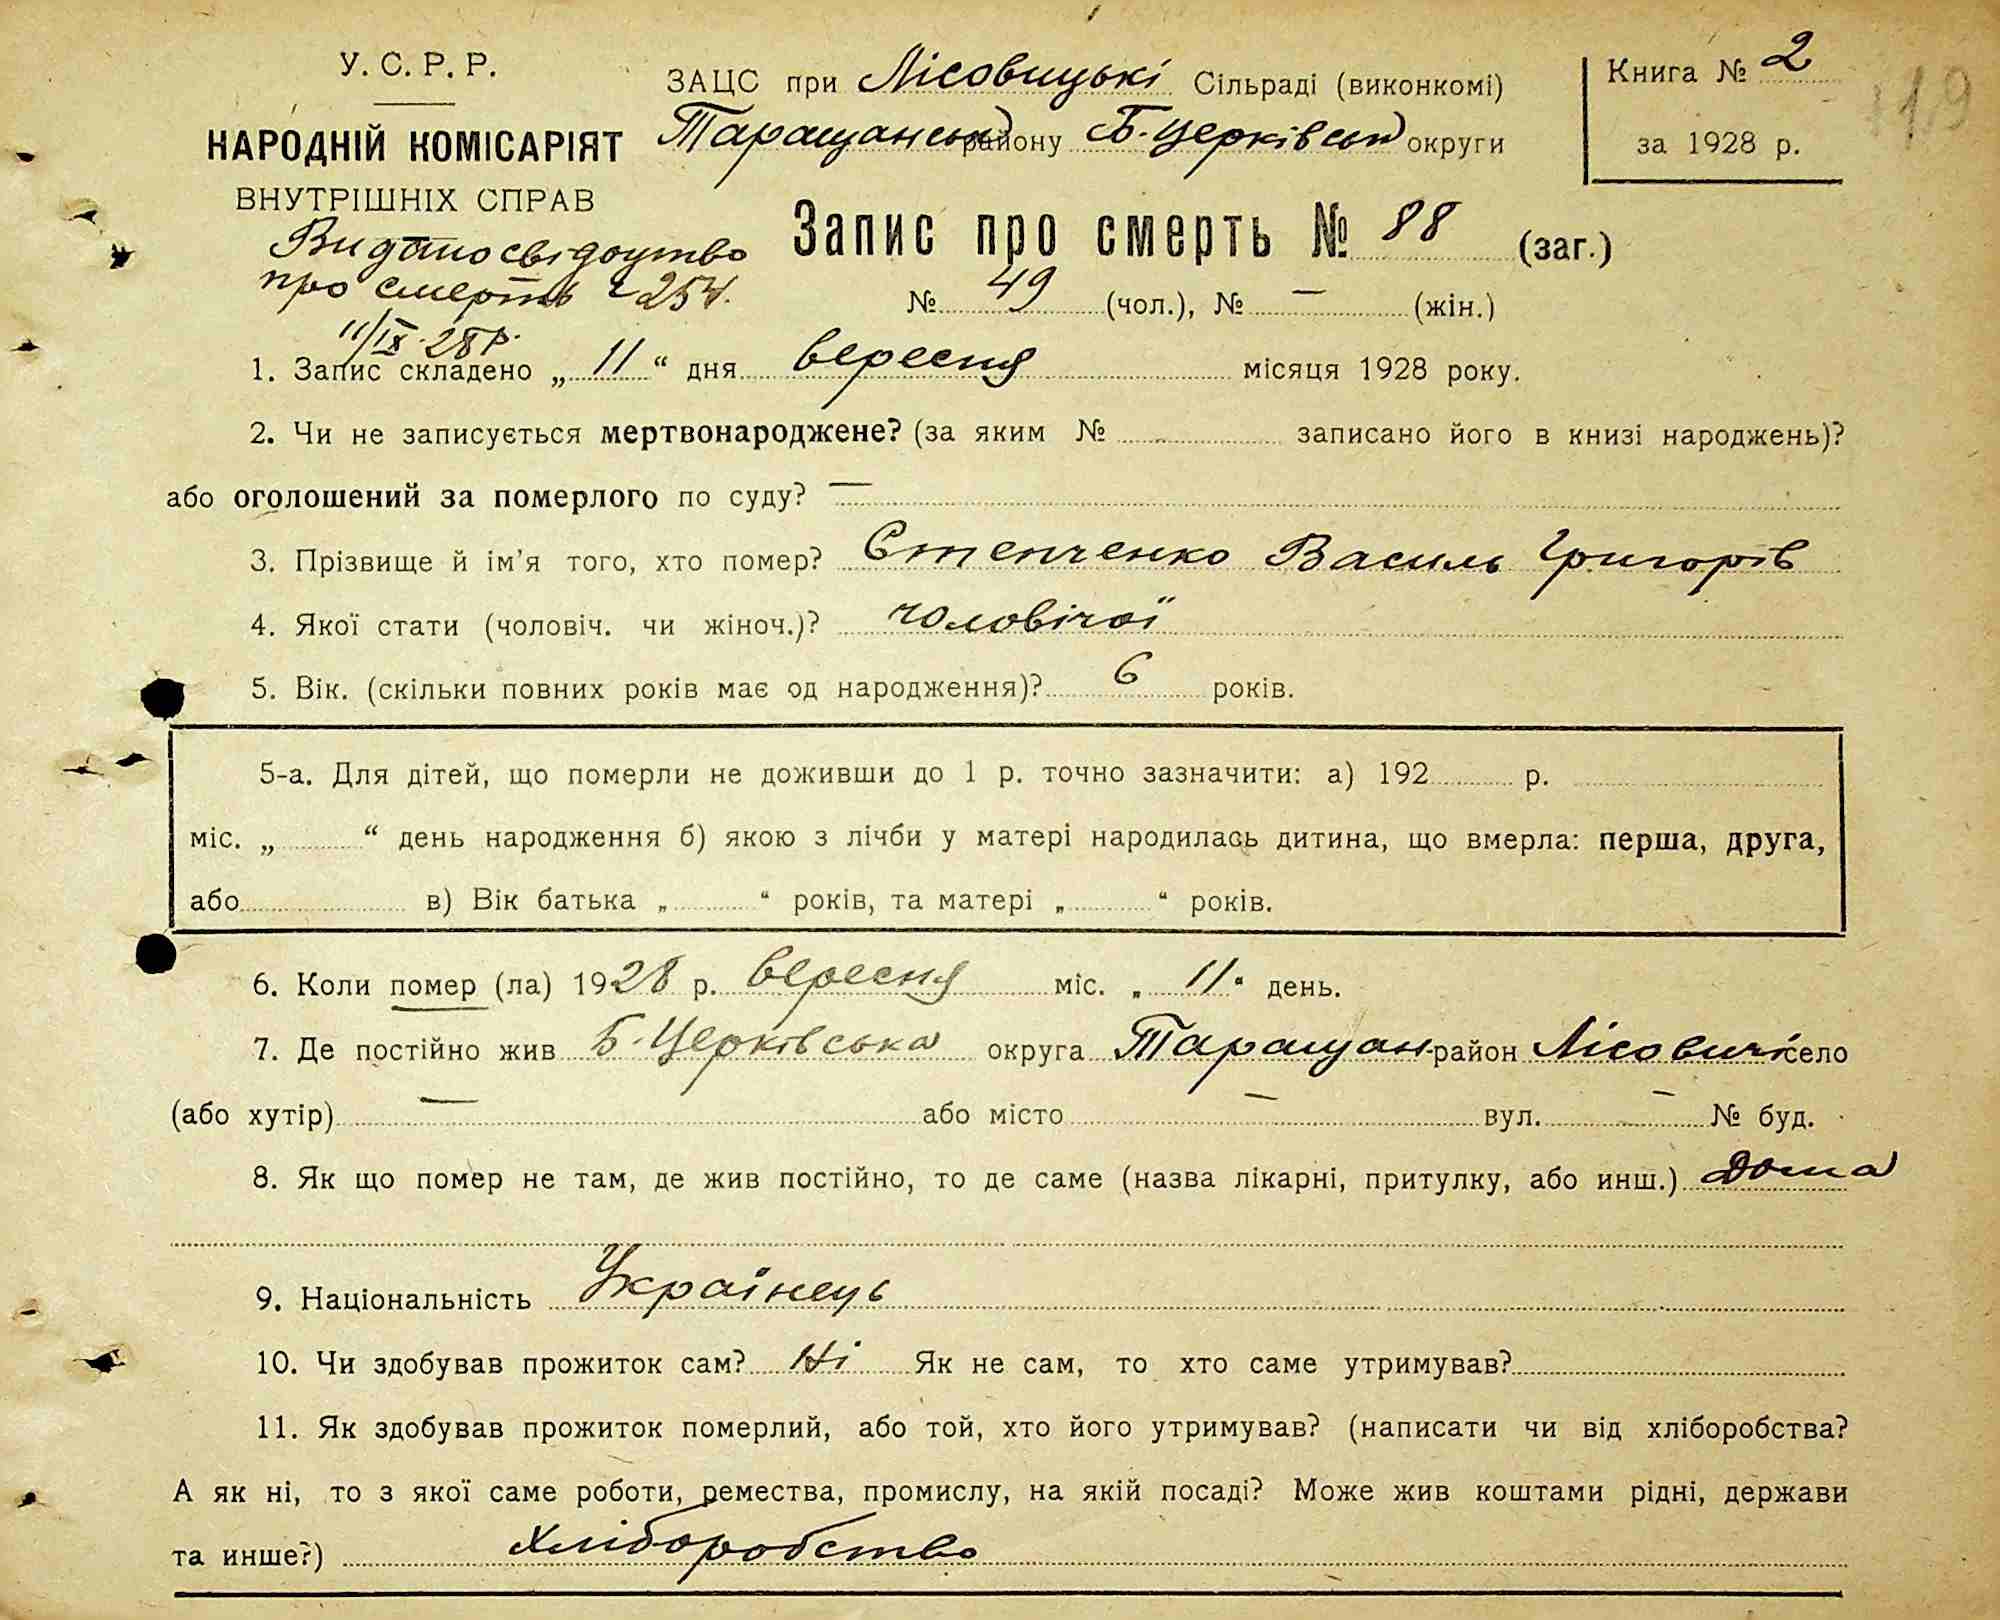 У. С. Р. Р.
НАРОДНІЙ КОМІСАРІЯТ
ВНУТРІШНІХ СПРАВ
Видано свідоцтво
про смерть 254.
11/IX-28 р.
ЗАЦС при Лісовицькі Сільраді (виконкомі)
Таращанськ району Б-церківськ округи
Книга № 2
за 1928 р.
119
Запис про смерть № 88 (заг.)
№ 49 (чол.), № — (жін.)
1. Запис складено „ 11 “ дня вересня місяця 1928 року.
2. Чи не записується мертвонароджене? (за яким № записано його в книзі народжень)?
або оголошений за померлого по суду? —
3. Прізвище й ім’я того, хто помер? Степченко Василь Григорів
4. Якої стати (чоловіч. чи жіноч.)? чоловічої
5. Вік. (скільки повних років має од народження)? 6 років.
5-а. Для дітей, що померли не доживши до 1 р. точно зазначити: а) 192 р.
міс. „ “ день народження б) якою з лічби у матері народилась дитина, що вмерла: перша, друга,
або в) Вік батька „ “ років, та матері „ “ років.
6. Коли помер (ла) 1928 р. вересня міс. „ 11 “ день.
7. Де постійно жив Б-Церківська округа Таращан- район Лісовичі село
(або хутір) — або місто — вул. — № буд.
8. Як що помер не там, де жив постійно, то де саме (назва лікарні, притулку, або инш.) Дома
9. Національність Українець
10. Чи здобував прожиток сам? Ні Як не сам, то хто саме утримував?
11. Як здобував прожиток померлий, або той, хто його утримував? (написати чи від хліборобства?
А як ні, то з якої саме роботи, ремества, промислу, на якій посаді? Може жив коштами рідні, держави
та инше?) Хліборобство